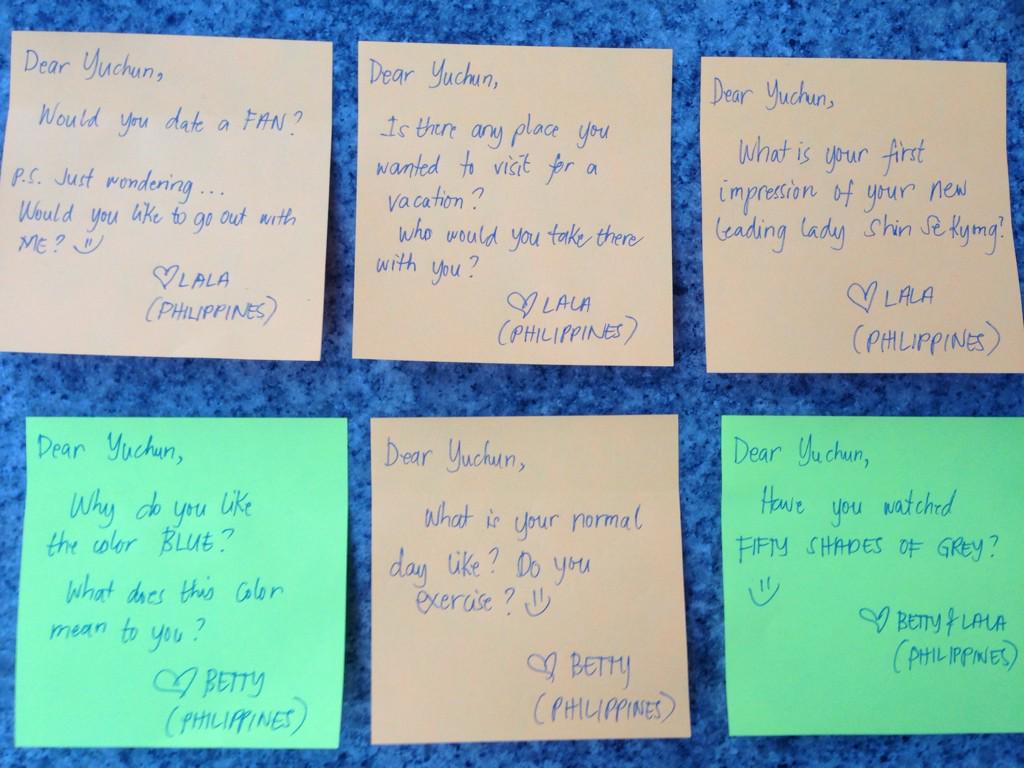 Dear Yuchun,
Would you date a FAN?
P.S. Just wondering...
Would you like to go out with
ME? :)
♡ LALA
(PHILIPPINES)
Dear Yuchun,
Is there any place you
wanted to visit for a
vacation?
Who would you take there
with you?
♡ LALA
(PHILIPPINES)
Dear Yuchun,
What is your first
impression of your new
leading lady Shin Se Kyung?
♡ LALA
(PHILIPPINES)
Dear Yuchun,
Why do you like
the color BLUE?
What does this color
mean to you?
♡ BETTY
(PHILIPPINES)
Dear Yuchun,
What is your normal
day like? Do you
exercise? :)
♡ BETTY
(PHILIPPINES)
Dear Yuchun,
Have you watched
FIFTY SHADES OF GREY?
:)
♡ BETTY & LALA
(PHILIPPINES)